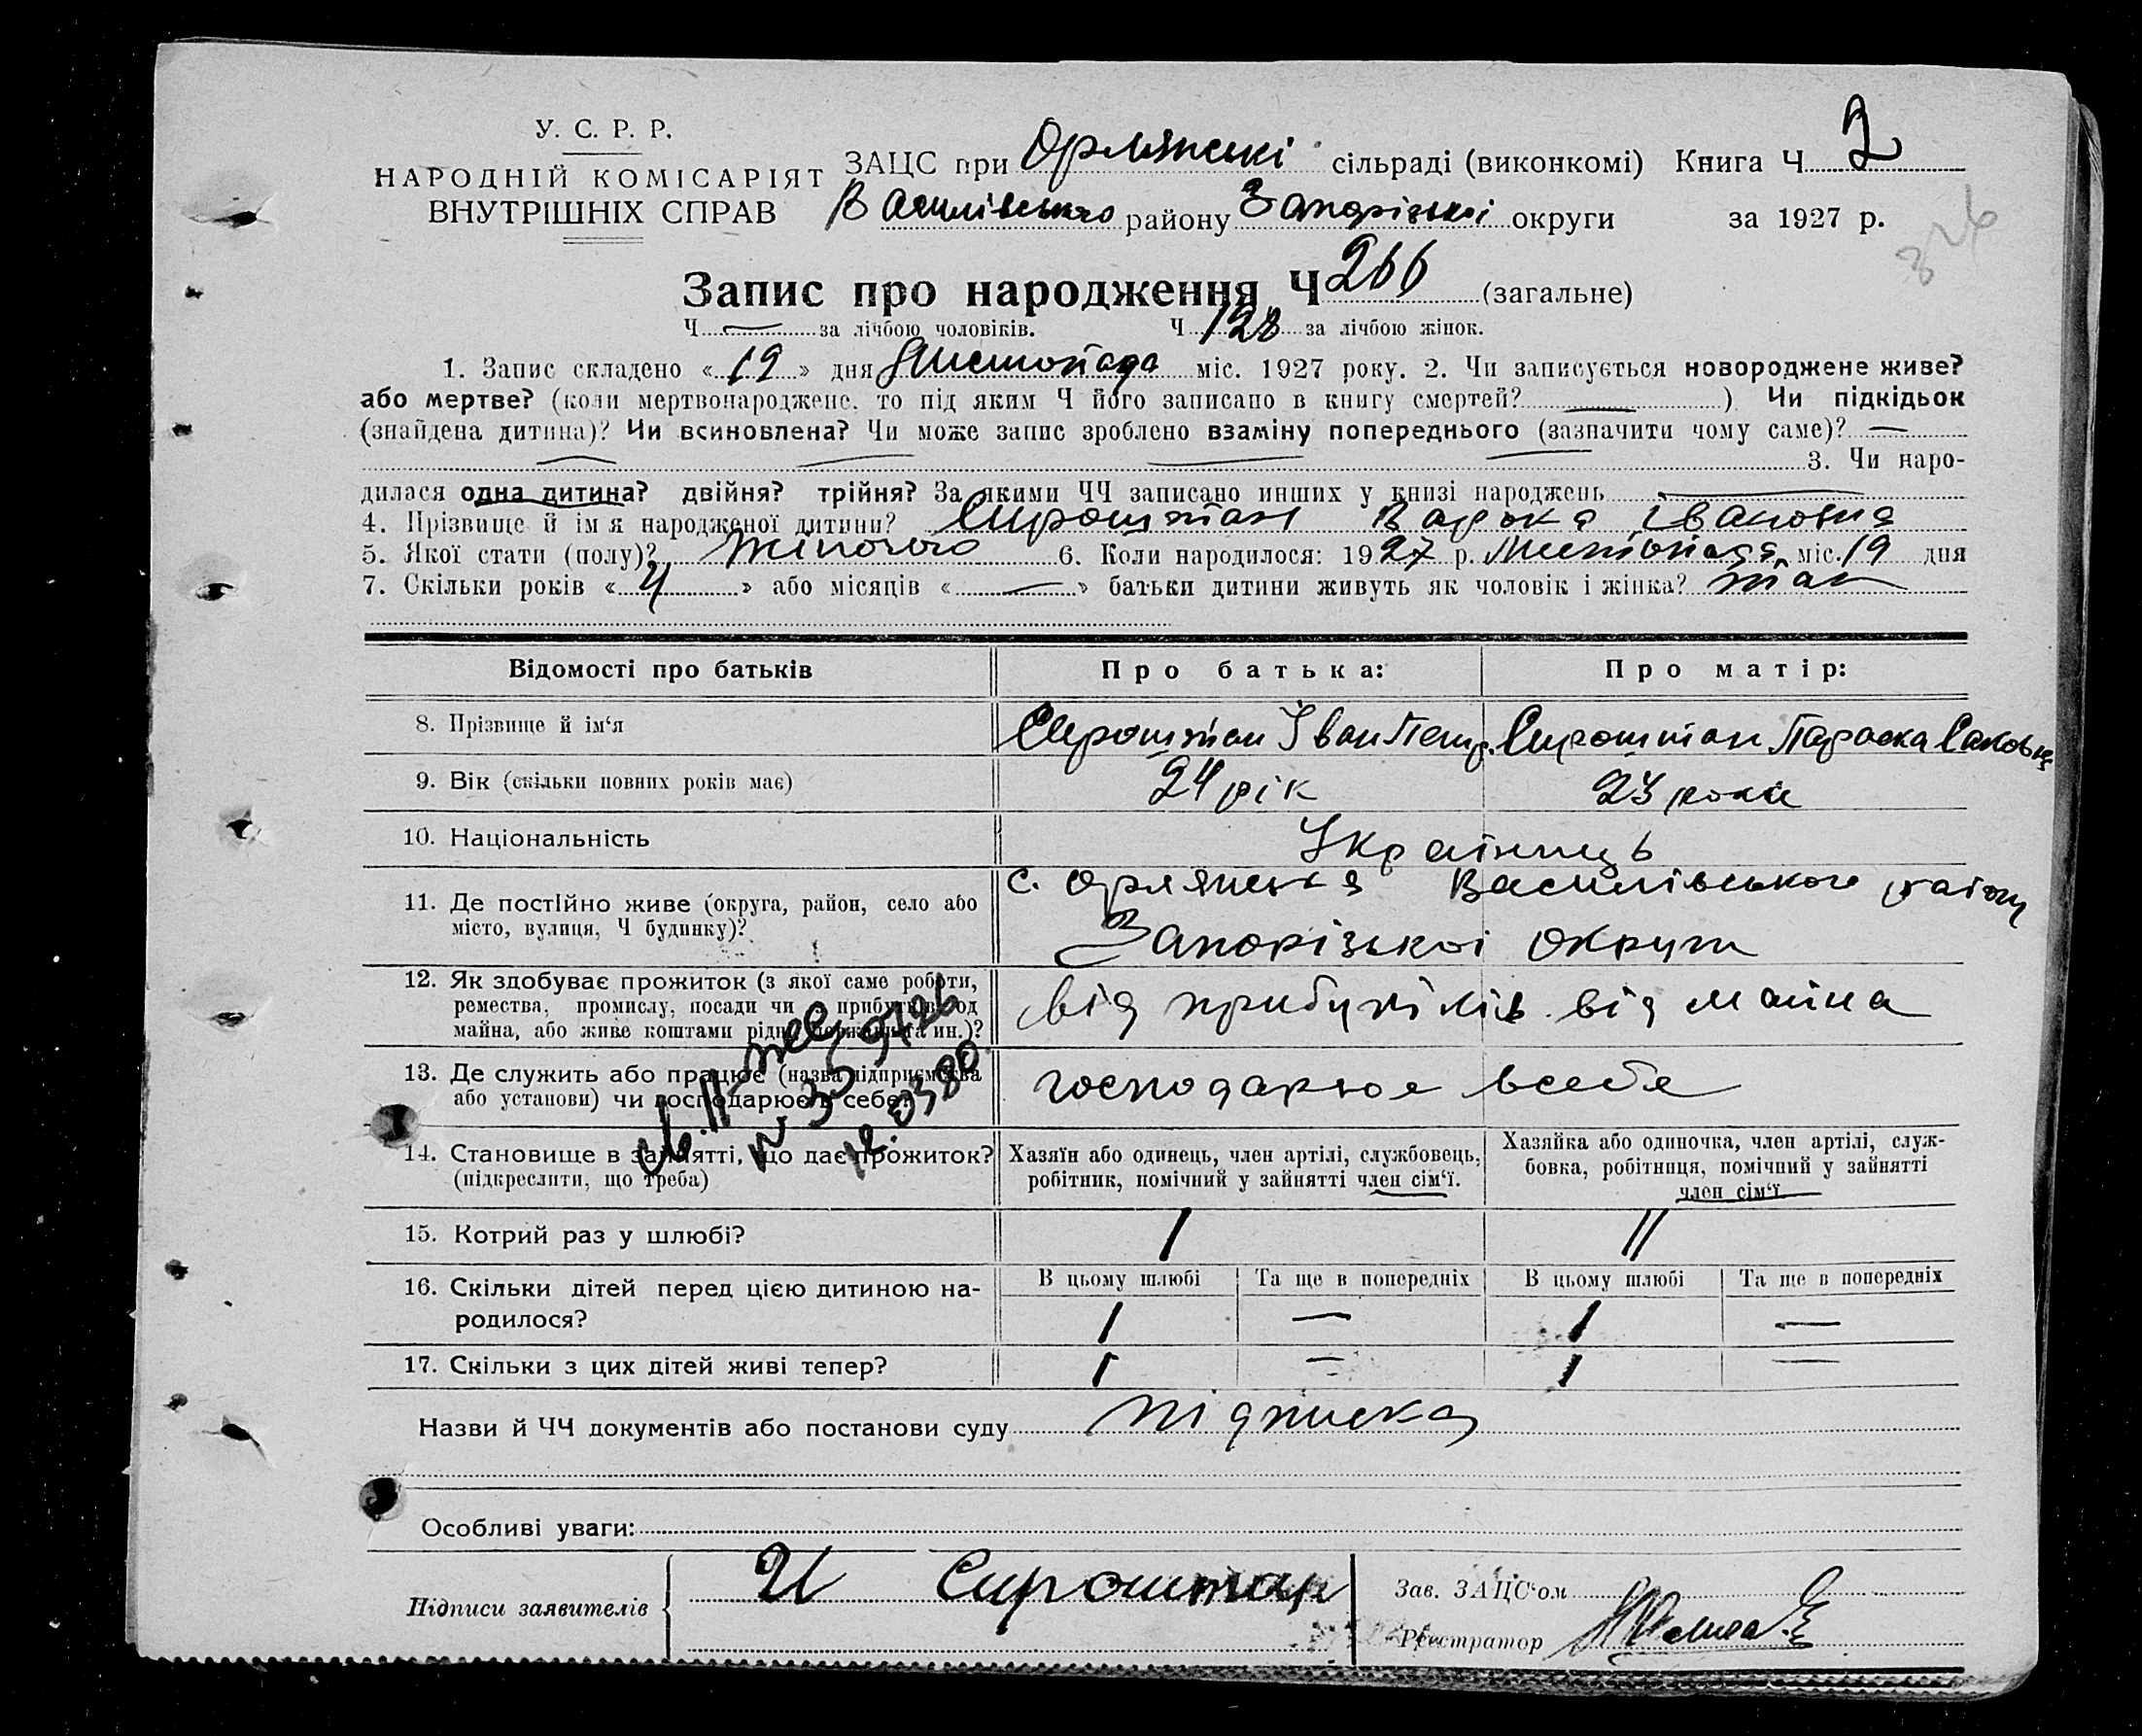 У. С. Р. Р.
НАРОДНІЙ КОМІСАРІЯТ
ВНУТРІШНІХ СПРАВ
ЗАЦС при Орлянські сільраді (виконкомі) Книга Ч 2
Василівського району Запорізькоі округи за 1927 р.
326
Запис про народження Ч 266 (загальне)
Ч — за лічбою чоловіків. Ч 128 за лічбою жінок.
1. Запис складено «19» дня Листопада міс. 1927 року. 2. Чи записується новороджене живе?
або мертве? (коли мертвонароджене, то під яким Ч його записано в книгу смертей? — ) Чи підкідьок
(знайдена дитина)? Чи всиновлена? Чи може запис зроблено взаміну попереднього (зазначити чому саме)? —
3. Чи наро-
дилася одна дитина? двійня? трійня? За якими ЧЧ записано инших у книзі народжень —
4. Прізвище й ім'я народженої дитини? Сироштан Івановна
5. Якої стати (полу)? жіночого 6. Коли народилося: 1927 р. Листопада міс. 19 дня
7. Скільки років «4» або місяців « — » батьки дитини живуть як чоловік і жінка? так
Відомості про батьків Про батька: Про матір:
8. Прізвище й ім'я Сироштан Іван Петр. Сироштан Параска
9. Вік (скільки повних років має) 24 рік 23 роки
10. Національність Українець
11. Де постійно живе (округа, район, село або
місто, вулиця, Ч будинку)?
с. Орлянська Василівського району
Запорізькоі округи
12. Як здобуває прожиток (з якої саме роботи,
ремества, промислу, посади чи прибутків од
майна, або живе коштами рідні, держави та ин.)?
від прибутків від майна
13. Де служить або працює (назва підприємства
або установи) чи господарює в себе?
господарює всебе
14. Становище в занятті, що дає прожиток?
(підкреслити, що треба)
Хазяїн або одинець, член артілі, службовець,
робітник, помічний у зайнятті член сім'ї.
Хазяйка або одиночка, член артілі, служ-
бовка, робітниця, помічний у зайнятті
член сім'ї
15. Котрий раз у шлюбі? I II
16. Скільки дітей перед цією дитиною на-
родилося?
В цьому шлюбі Та ще в попередніх В цьому шлюбі Та ще в попередніх
1 — 1 —
17. Скільки з цих дітей живі тепер? 1 — 1 —
Назви й ЧЧ документів або постанови суду підписка
Особливі уваги:
Підписи заявителів И Сироштан
Зав. ЗАЦС'ом
Реєстратор